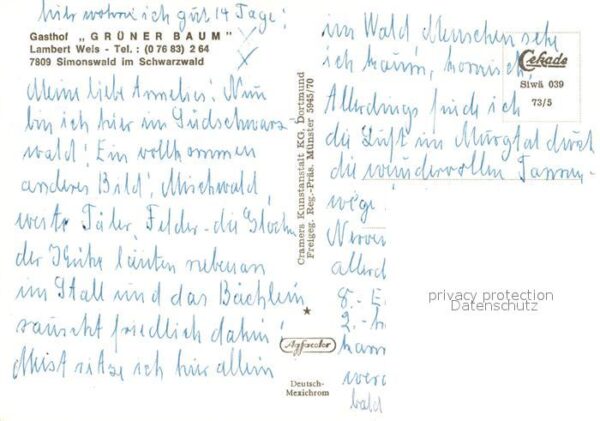 hier wohne ich gut 14 Tage!
Gasthof „GRÜNER BAUM"
Lambert Weis - Tel.: (0 76 83) 2 64
7809 Simonswald im Schwarzwald
Meine liebe Annelies! Nun
bin ich hier im Südschwarz-
wald! Ein vollkommen
anderes Bild! Mischwald,
weite Täler, Felder - die Glocken
der Kühe läuten nebenan
im Stall und das Bächlein
rauscht friedlich dahin!
Meist sitze ich hier allein
Cramers Kunstanstalt KG, Dortmund
Freigeg. Reg.-Präs. Münster 5945/70
Agfacolor
Deutsch-
Mexichrom
im Wald Menschen sehe
ich kaum, komisch,
Allerdings finde ich
die Luft im Murgtal durch
die wundervollen Tannen-
wege
Nerven
allerd
8.- E
2.- h
kam
werd
bald
Cekade
Siwä 039
73/5
privacy protection
Datenschutz